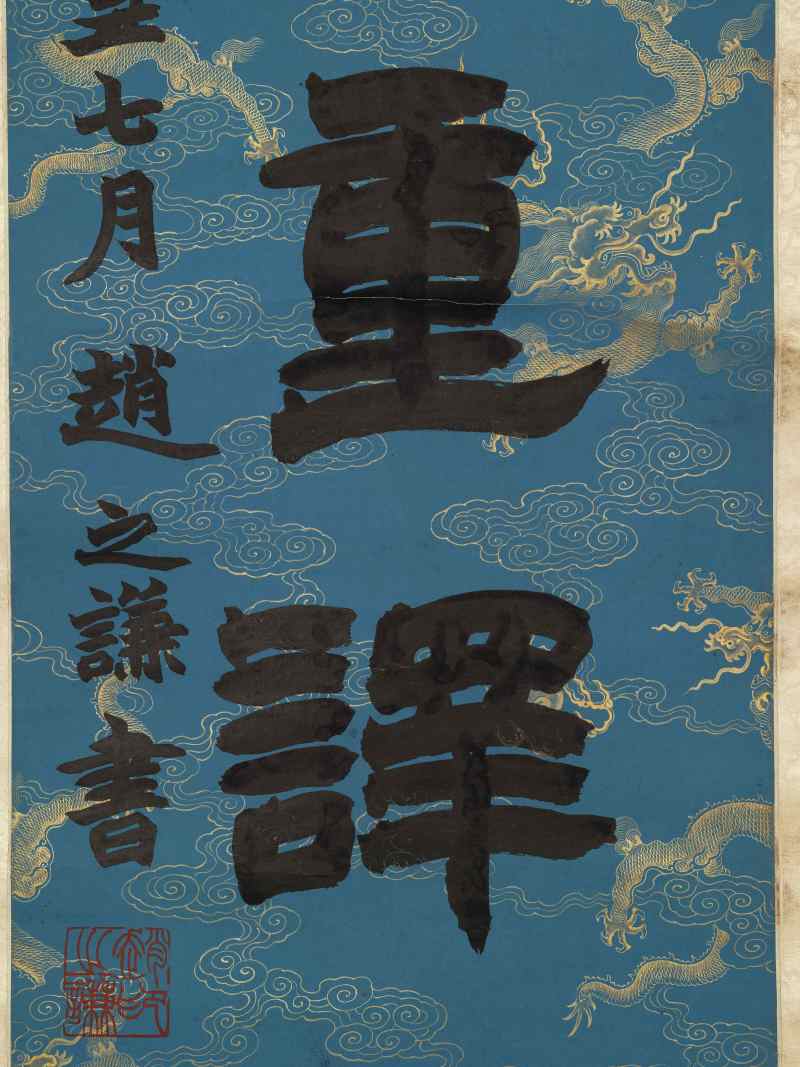 重譯
七月 趙之謙書